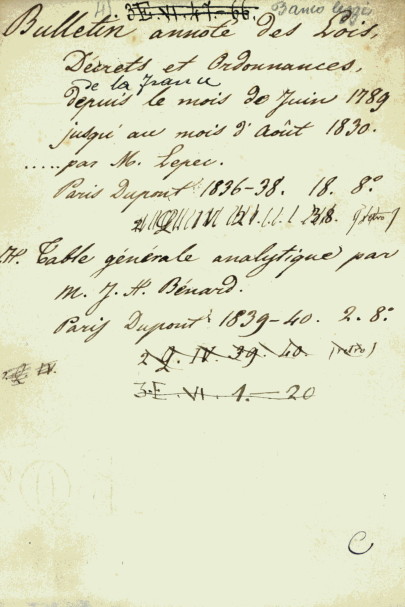 3 E. VI. 47-66. Banco leggi
Bulletin annoté des Lois,
Décrets et Ordonnances,
de la France
depuis le mois de Juin 1789
jusqu'au mois d'Août 1830.
.....par M. Lepec.
Paris Dupont 1836-38. 18. 8.º
(retro)
Table générale analytique par
M. J. H. Bénard.
Paris Dupont 1839-40. 2. 8.º
2. Q. IV. 39. 40. (retro)
2. Q. IV.
3. E. VI. 1. — 20
C